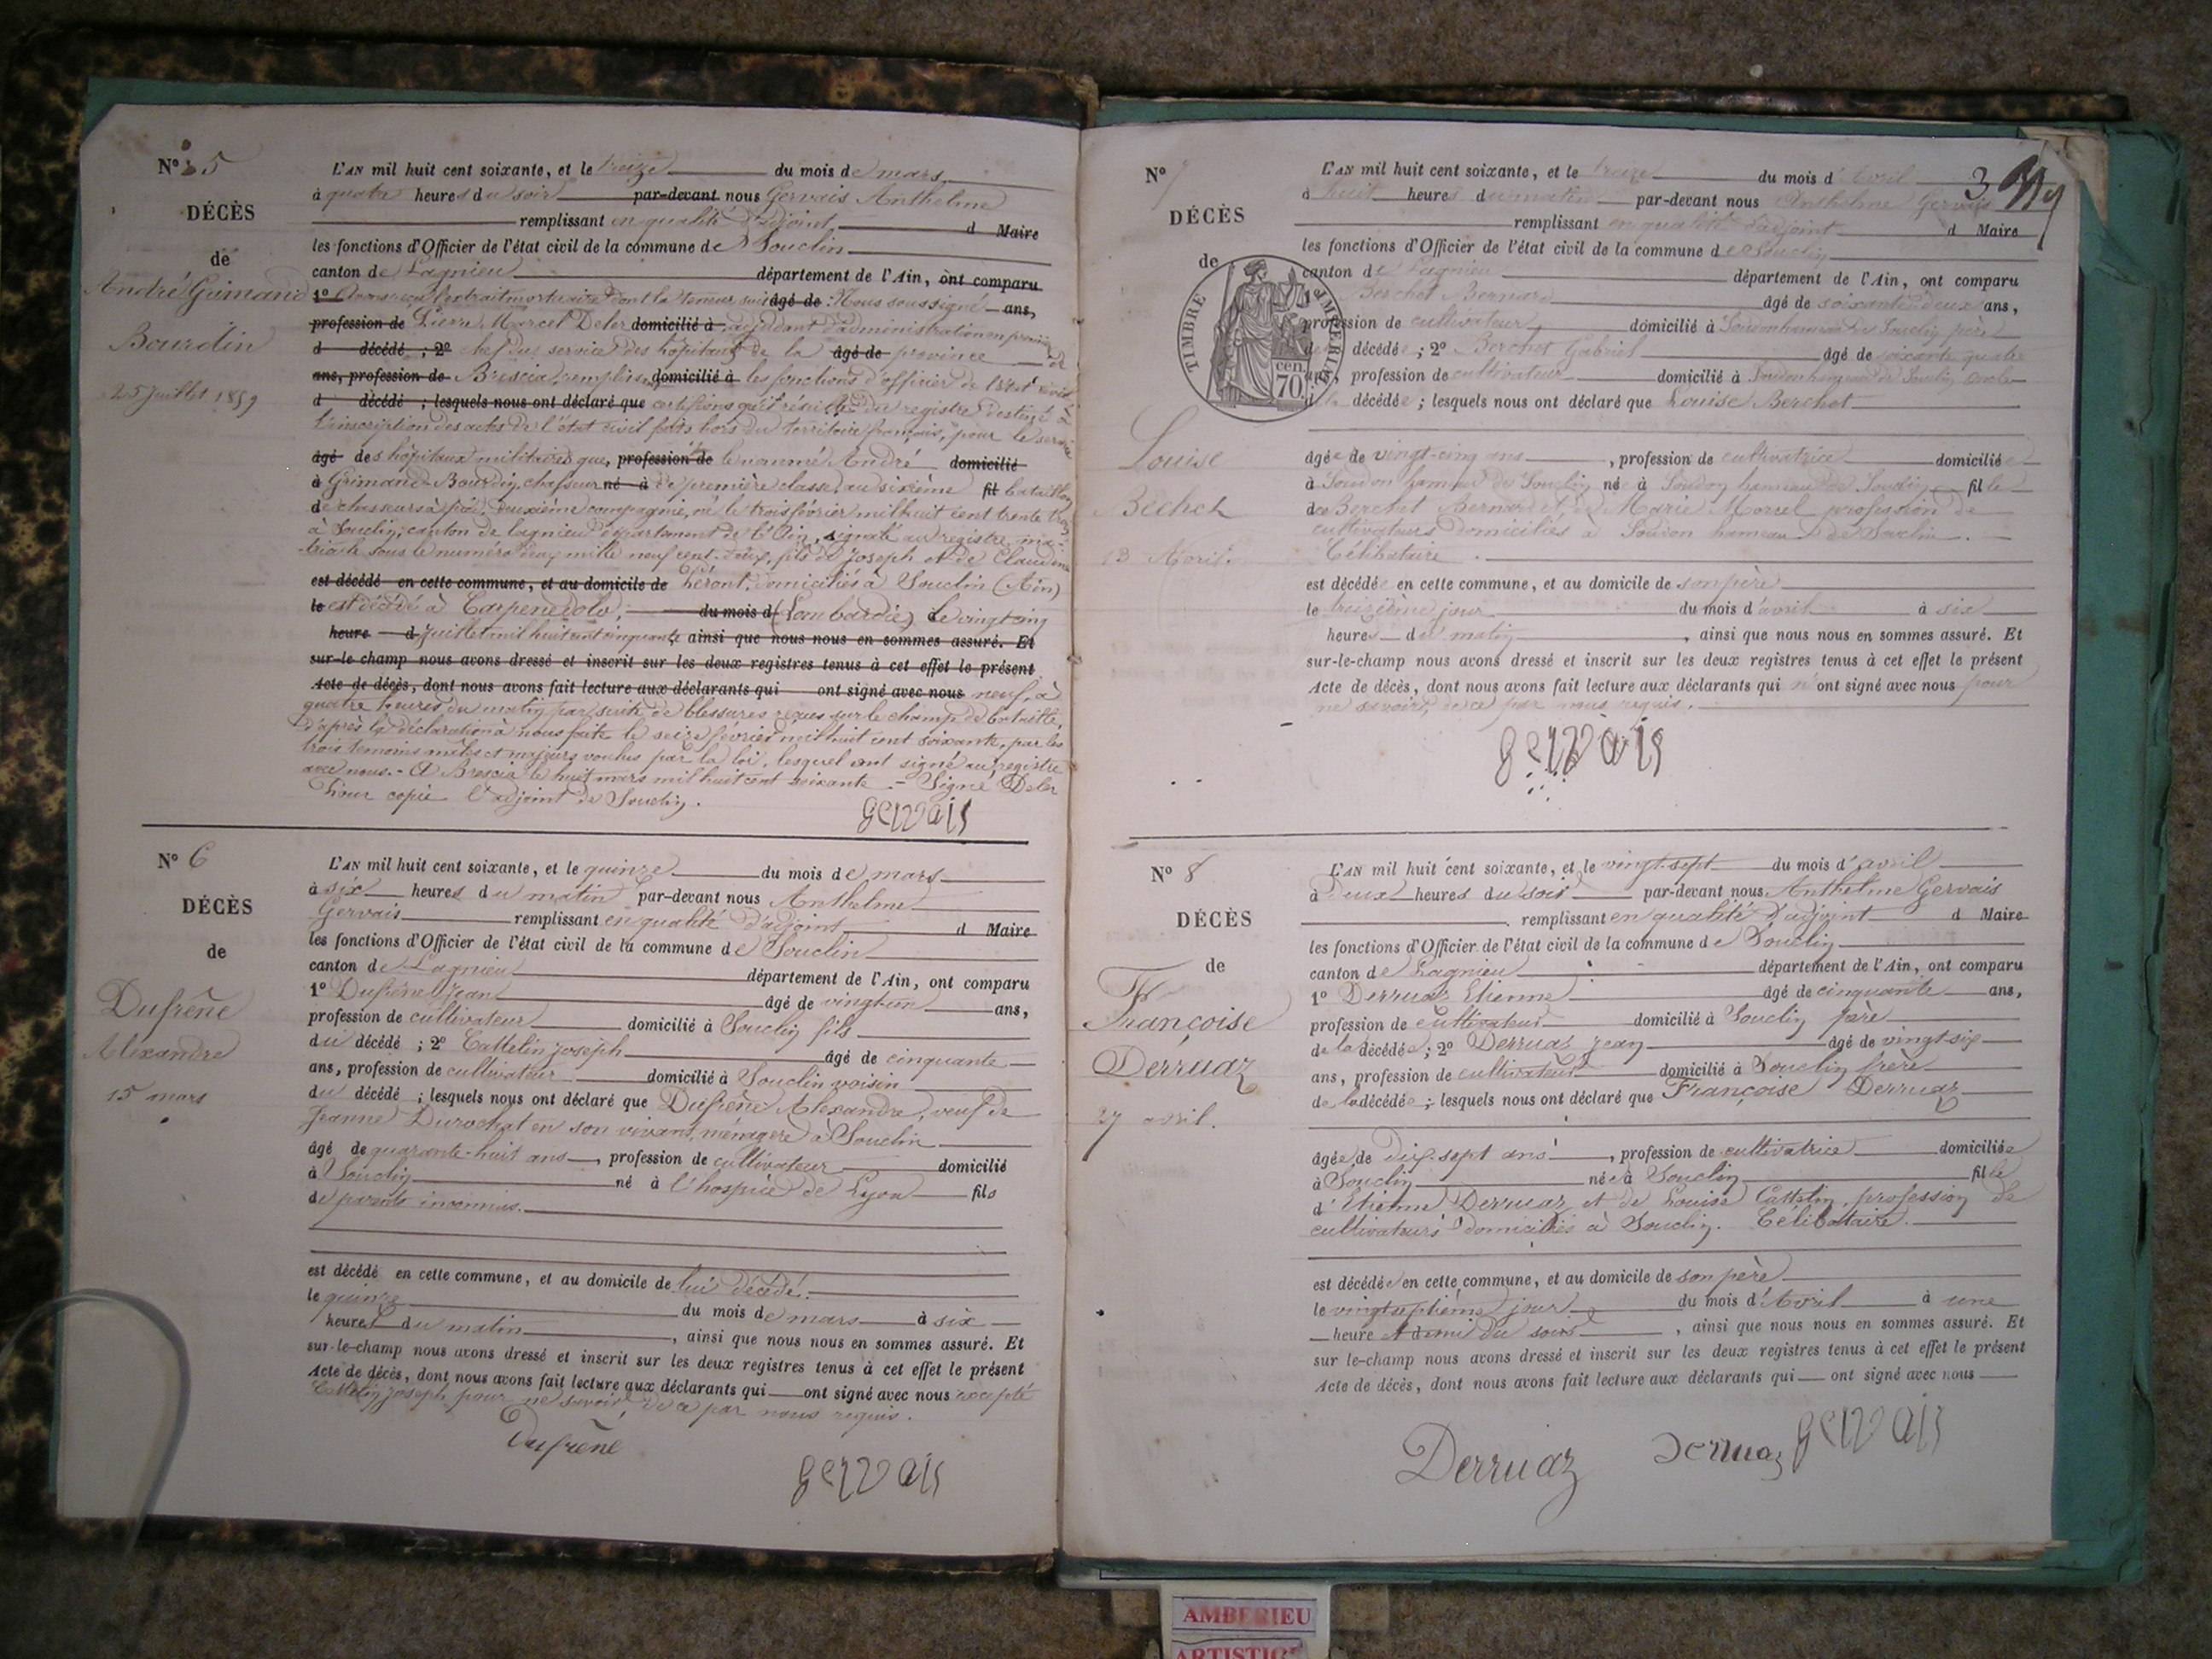 N° 5
DÉCÈS
de
André Grimand
Bourdin
25 juillet 1859
L'AN mil huit cent soixante, et le treize du mois de mars
à quatre heures du soir par-devant nous Gervais Anthelme
remplissant en qualité d'adjoint d Maire
les fonctions d'Officier de l'état civil de la commune de Souclin
canton de Lagnieu département de l'Ain, ont comparu
1° l'extrait mortuaire dont la teneur suit âgé de : Nous soussigné ans,
profession de Pierre Marcel Deler domicilié à adjudant d'administration en premier
d décédé ; 2° chef du service des hôpitaux de la âgé de province de
ans, profession de Brescia, remplissant domicilié à les fonctions d'officier de l'état civil
d décédé ; lesquels nous ont déclaré que certifions qu'il résulte du registre destiné à
l'inscription des actes de l'état civil faits hors du territoire français, pour le service
âgé des hôpitaux militaires que, profession de le nommé André domicilié
à Grimand-Bourdin, chasseur né à de première classe au sixième fil bataillon
de chasseurs à pied, deuxième compagnie, né le trois février mil huit cent trente trois
à Souclin, canton de Lagnieu département de l'Ain, signalé au registre ma-
tricule sous le numéro deux mille neuf cent deux, fils de Joseph et de Claudine
est décédé en cette commune, et au domicile de Héront, domiciliés à Souclin (Ain)
le est décédé à Carpenedolo, du mois d (Lombardie) le vingt cinq
heure d juillet mil huit cent cinquante ainsi que nous nous en sommes assuré. Et
sur-le-champ nous avons dressé et inscrit sur les deux registres tenus à cet effet le présent
Acte de décès, dont nous avons fait lecture aux déclarants qui ont signé avec nous neuf, à
quatre heures du matin par suite de blessures reçues sur le champ de bataille,
d'après la déclaration à nous faite le seize février mil huit cent soixante, par les
trois témoins mâles et majeurs voulus par la loi, lesquel ont signé au registre
avec nous. - A Brescia le huit mars mil huit cent soixante. - Signé Deler
Pour copie l'adjoint de Souclin.
Gervais
N° 6
DÉCÈS
de
Dufrêne
Alexandre
15 mars
L'AN mil huit cent soixante, et le quinze du mois de mars
à six heures du matin par-devant nous Anthelme
Gervais remplissant en qualité d'adjoint d Maire
les fonctions d'Officier de l'état civil de la commune de Souclin
canton de Lagnieu département de l'Ain, ont comparu
1° Dufrêne Jean âgé de vingt-un ans,
profession de cultivateur domicilié à Souclin fils
du décédé ; 2° Cattelin Joseph âgé de cinquante
ans, profession de cultivateur domicilié à Souclin voisin
du décédé ; lesquels nous ont déclaré que Dufrêne Alexandre, veuf de
Jeanne Durochat en son vivant ménagère à Souclin
âgé de quarante-huit ans, profession de cultivateur domicilié
à Souclin né à l'hospice de Lyon fils
de parents inconnus.
est décédé en cette commune, et au domicile de lui décédé.
le quinze du mois de mars à six
heures du matin, ainsi que nous nous en sommes assuré. Et
sur-le-champ nous avons dressé et inscrit sur les deux registres tenus à cet effet le présent
Acte de décès, dont nous avons fait lecture aux déclarants qui ont signé avec nous excepté
Cattelin Joseph pour ne savoir, de ce par nous requis.
Dufrêne
Gervais
N° 7
DÉCÈS
de
TIMBRE IMPÉRIAL
70 cen.
Louise
Bechet
13 Avril.
3
L'AN mil huit cent soixante, et le treize du mois d'Avril
à huit heures du matin par-devant nous Anthelme Gervais
remplissant en qualité d'adjoint d Maire
les fonctions d'Officier de l'état civil de la commune de Souclin
canton de Lagnieu département de l'Ain, ont comparu
1° Berchet Bernard âgé de soixante deux ans,
profession de cultivateur domicilié à Soudon hameau de Souclin père
de la décédée ; 2° Berchet Gabriel âgé de soixante quatre
ans, profession de cultivateur domicilié à Soudon hameau de Souclin oncle
de la décédée ; lesquels nous ont déclaré que Louise Berchet
âgée de vingt-cinq ans, profession de cultivatrice domiciliée
à Soudon hameau de Souclin née à Soudon hameau de Souclin fille
de Berchet Bernard et de Marie Morel profession de
cultivateurs domiciliés à Soudon hameau de Souclin.
Célibataire.
est décédée en cette commune, et au domicile de son père
le treizième jour du mois d'avril à six
heures du matin, ainsi que nous nous en sommes assuré. Et
sur-le-champ nous avons dressé et inscrit sur les deux registres tenus à cet effet le présent
Acte de décès, dont nous avons fait lecture aux déclarants qui n'ont signé avec nous pour
ne savoir, de ce par nous requis.
Gervais
N° 8
DÉCÈS
de
Françoise
Derruaz
27 avril.
L'AN mil huit cent soixante, et le vingt-sept du mois d'avril
à deux heures du soir par-devant nous Anthelme Gervais
remplissant en qualité d'adjoint d Maire
les fonctions d'Officier de l'état civil de la commune de Souclin
canton de Lagnieu département de l'Ain, ont comparu
1° Derruaz Etienne âgé de cinquante ans,
profession de cultivateur domicilié à Souclin père
de la décédée ; 2° Derruaz Jean âgé de vingt-six
ans, profession de cultivateur domicilié à Souclin frère
de la décédée ; lesquels nous ont déclaré que Françoise Derruaz
âgée de dix-sept ans, profession de cultivatrice domiciliée
à Souclin née à Souclin fille
d'Etienne Derruaz et de Louise Cattelin, profession de
cultivateurs domiciliés à Souclin. Célibataire.
est décédée en cette commune, et au domicile de son père
le vingt septième jour du mois d'Avril à une
heure et demi du soir, ainsi que nous nous en sommes assuré. Et
sur le-champ nous avons dressé et inscrit sur les deux registres tenus à cet effet le présent
Acte de décès, dont nous avons fait lecture aux déclarants qui ont signé avec nous
Derruaz Derruaz Gervais
AMBERIEU
ARTISTIQUE